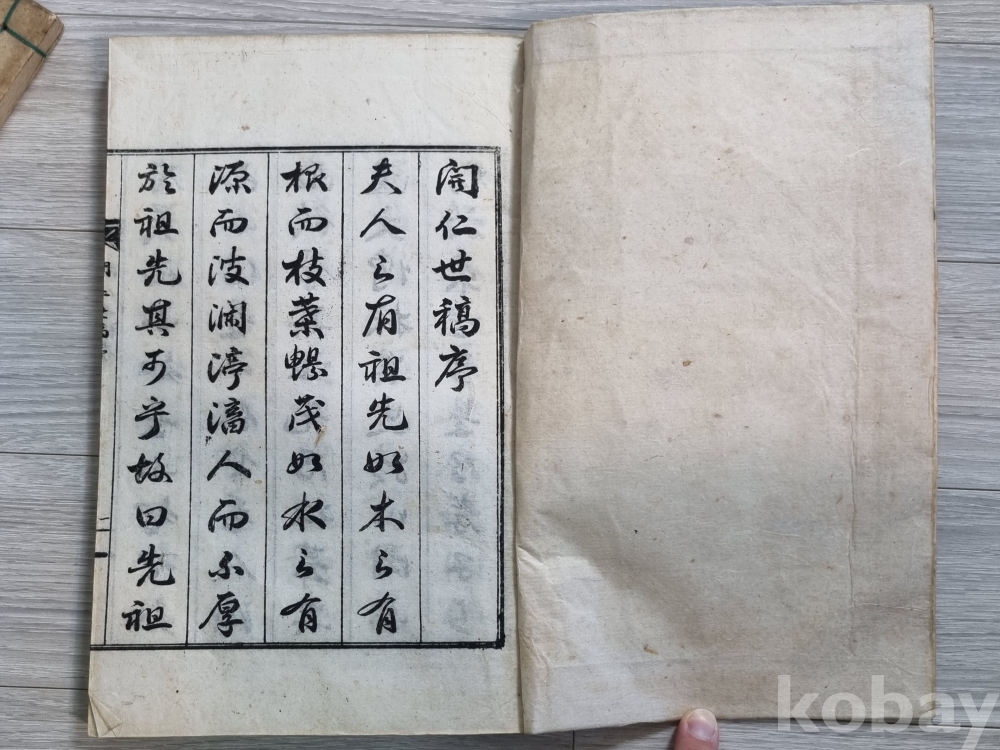 開仁世稿序
夫人之有祖先如木之有
根而枝葉暢茂如水之有
源而波瀾渟滀人而不厚
於祖先其可乎故曰先祖
kobay